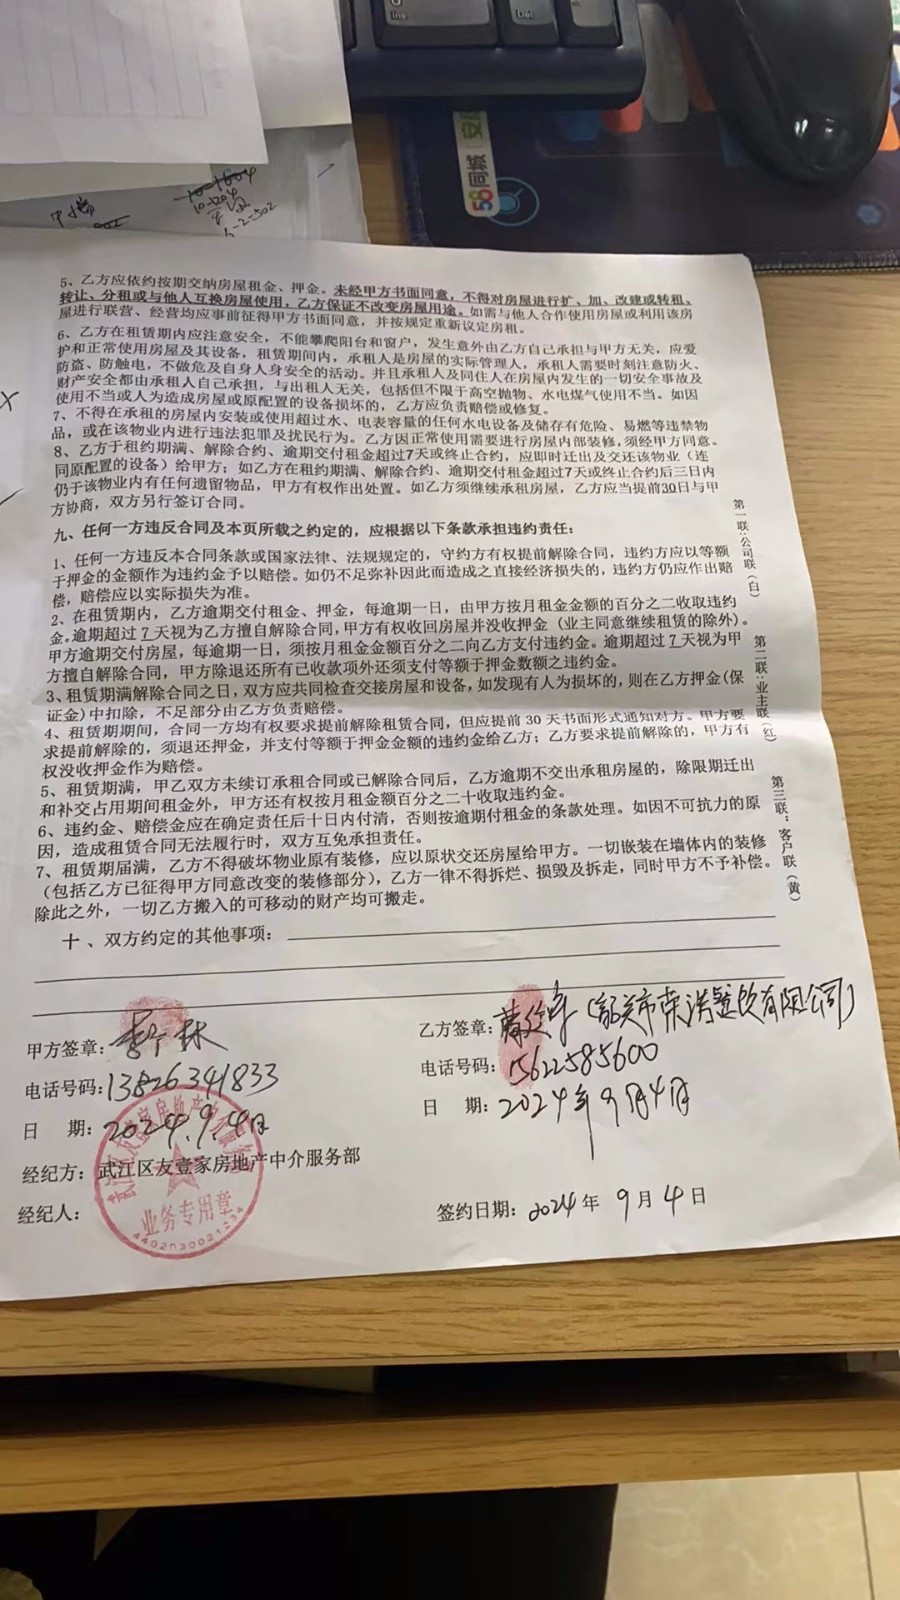 Ins
Del
58同城
10-1804
10-1204
5-2-502
5、乙方应依约按期交纳房屋租金、押金。未经甲方书面同意，不得对房屋进行扩、加、改建或转租、
转让、分租或与他人互换房屋使用，乙方保证不改变房屋用途。如需与他人合作使用房屋或利用该房
屋进行联营、经营均应事前征得甲方书面同意，并按规定重新议定房租。
6、乙方在租赁期内应注意安全，不能攀爬阳台和窗户，发生意外由乙方自己承担与甲方无关，应爱
护和正常使用房屋及其设备，租赁期间内，承租人是房屋的实际管理人，承租人需要时刻注意防火、
防盗、防触电，不做危及自身人身安全的活动。并且承租人及同住人在房屋内发生的一切安全事故及
财产安全都由承租人自己承担，与出租人无关，包括但不限于高空抛物、水电煤气使用不当。如因
使用不当或人为造成房屋或原配置的设备损坏的，乙方应负责赔偿或修复。
7、不得在承租的房屋内安装或使用超过水、电表容量的任何水电设备及储存有危险、易燃等违禁物
品，或在该物业内进行违法犯罪及扰民行为。乙方因正常使用需要进行房屋内部装修，须经甲方同意。
8、乙方于租约期满、解除合约、逾期交付租金超过7天或终止合约，应即时迁出及交还该物业（连
同原配置的设备）给甲方；如乙方在租约期满、解除合约、逾期交付租金超过7天或终止合约后三日内
仍于该物业内有任何遗留物品，甲方有权作出处置。如乙方须继续承租房屋，乙方应当提前30日与甲
方协商，双方另行签订合同。
九、任何一方违反合同及本页所载之约定的，应根据以下条款承担违约责任：
1、任何一方违反本合同条款或国家法律、法规规定的，守约方有权提前解除合同，违约方应以等额
于押金的金额作为违约金予以赔偿。如仍不足弥补因此而造成之直接经济损失的，违约方仍应作出赔
偿，赔偿应以实际损失为准。
2、在租赁期内，乙方逾期交付租金、押金，每逾期一日，由甲方按月租金金额的百分之二收取违约
金。逾期超过 7 天视为乙方擅自解除合同，甲方有权收回房屋并没收押金（业主同意继续租赁的除外）。
甲方逾期交付房屋，每逾期一日，须按月租金金额百分之二向乙方支付违约金。逾期超过 7 天视为甲
方擅自解除合同，甲方除退还所有已收款项外还须支付等额于押金数额之违约金。
3、租赁期满解除合同之日，双方应共同检查交接房屋和设备，如发现有人为损坏的，则在乙方押金(保
证金)中扣除，不足部分由乙方负责赔偿。
4、租赁期期间，合同一方均有权要求提前解除租赁合同，但应提前 30 天书面形式通知对方。甲方要
求提前解除的，须退还押金，并支付等额于押金金额的违约金给乙方；乙方要求提前解除的，甲方有
权没收押金作为赔偿。
5、租赁期满，甲乙双方未续订承租合同或已解除合同后，乙方逾期不交出承租房屋的，除限期迁出
和补交占用期间租金外，甲方还有权按月租金额百分之二十收取违约金。
6、违约金、赔偿金应在确定责任后十日内付清，否则按逾期付租金的条款处理。如因不可抗力的原
因，造成租赁合同无法履行时，双方互免承担责任。
7、租赁期届满，乙方不得破坏物业原有装修，应以原状交还房屋给甲方。一切嵌装在墙体内的装修
（包括乙方已征得甲方同意改变的装修部分），乙方一律不得拆烂、损毁及拆走，同时甲方不予补偿。
除此之外，一切乙方搬入的可移动的财产均可搬走。
十、双方约定的其他事项：
第一联:公司联（白）
第二联:业主联（红）
第三联：客户联（黄）
甲方签章：
电话号码:13826341833
日 期：2024.9.4日
经纪方：武江区友壹家房地产中介服务部
经纪人：
业务专用章
4402030021234
乙方签章： （韶关市荣诺餐饮有限公司）
电话号码：15622585600
日 期：2024年9月4日
签约日期：2024年 9月4日